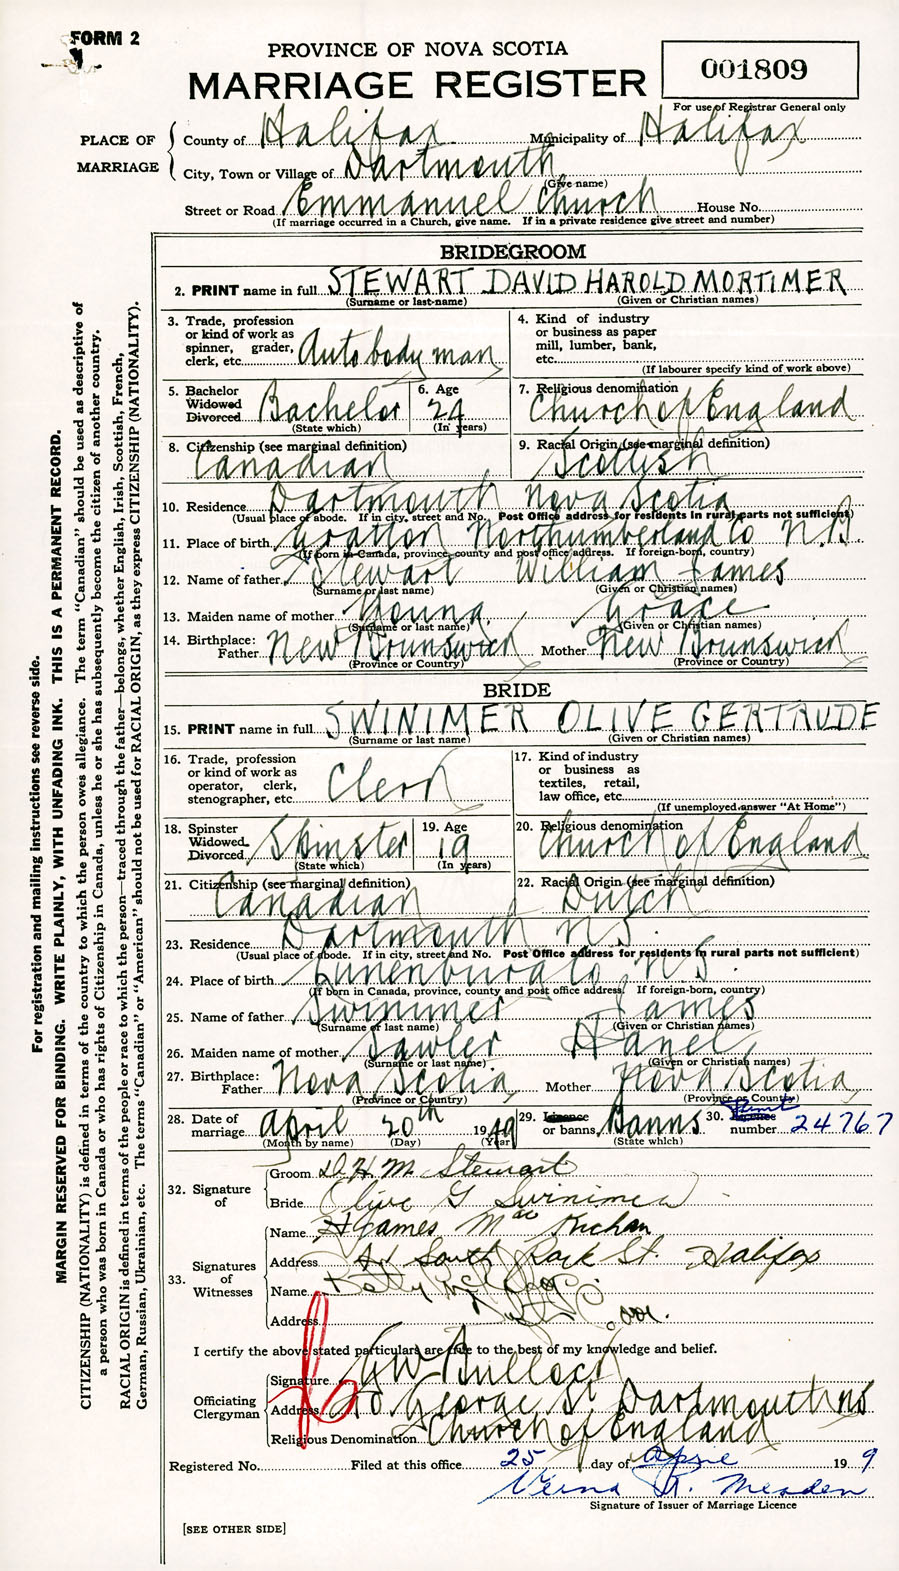 FORM 2
PROVINCE OF NOVA SCOTIA
MARRIAGE REGISTER
001809
For use of Registrar General only
PLACE OF MARRIAGE
County of Halifax Municipality of Halifax
City, Town or Village of Dartmouth
(Give name)
Street or Road Emmanuel Church House No.
(If marriage occurred in a Church, give name. If in a private residence give street and number)
BRIDEGROOM
2. PRINT name in full STEWART DAVID HAROLD MORTIMER
(Surname or last name) (Given or Christian names)
3. Trade, profession or kind of work as spinner, grader, clerk, etc. Auto body man
4. Kind of industry or business as paper mill, lumber, bank, etc.
(If labourer specify kind of work above)
5. Bachelor Widowed Divorced Bachelor
(State which)
6. Age 24
(In years)
7. Religious denomination Church of England
8. Citizenship (see marginal definition) Canadian
9. Racial Origin (see marginal definition) Scottish
10. Residence Dartmouth Nova Scotia
(Usual place of abode. If in city, street and No. Post Office address for residents in rural parts not sufficient)
11. Place of birth Northumberland Co N.B.
(If born in Canada, province, county and post office address. If foreign-born, country)
12. Name of father Stewart William James
(Surname or last name) (Given or Christian names)
13. Maiden name of mother Young Grace
(Surname or last name) (Given or Christian names)
14. Birthplace: Father New Brunswick Mother New Brunswick
(Province or Country) (Province or Country)
BRIDE
15. PRINT name in full SWINIMER OLIVE GERTRUDE
(Surname or last name) (Given or Christian names)
16. Trade, profession or kind of work as operator, clerk, stenographer, etc. Clerk
17. Kind of industry or business as textiles, retail, law office, etc.
(If unemployed answer "At Home")
18. Spinster Widowed Divorced Spinster
(State which)
19. Age 19
(In years)
20. Religious denomination Church of England
21. Citizenship (see marginal definition) Canadian
22. Racial Origin (see marginal definition) Dutch
23. Residence Dartmouth N.S.
(Usual place of abode. If in city, street and No. Post Office address for residents in rural parts not sufficient)
24. Place of birth Lunenburg Co N.S.
(If born in Canada, province, county and post office address. If foreign-born, country)
25. Name of father Swinimer James
(Surname or last name) (Given or Christian names)
26. Maiden name of mother Sawler
(Surname or last name) (Given or Christian names)
27. Birthplace: Father Nova Scotia Mother Nova Scotia
(Province or Country) (Province or Country)
28. Date of marriage April 20th 1949
(Month by name) (Day) (Year)
29. Licence or banns Banns
(State which)
30. Licence Permit number 24767
32. Signature of
Groom D. H. M. Stewart
Bride Olive G Swinimer
33. Signatures of Witnesses
Name James Mac
Address South Park St. Halifax
Name Betty
Address
I certify the above stated particulars are true to the best of my knowledge and belief.
Officiating Clergyman
Signature G W Bullock
Address George St. Dartmouth NS
Religious Denomination Church of England
Registered No. Filed at this office 25 day of April 19 9
Verna R. Meaden
Signature of Issuer of Marriage Licence
[SEE OTHER SIDE]
For registration and mailing instructions see reverse side.
MARGIN RESERVED FOR BINDING. WRITE PLAINLY, WITH UNFADING INK. THIS IS A PERMANENT RECORD.
CITIZENSHIP (NATIONALITY) is defined in terms of the country to which the person owes allegiance. The term "Canadian" should be used as descriptive of
a person who was born in Canada or who has rights of Citizenship in Canada, unless he or she has subsequently become the citizen of another country.
RACIAL ORIGIN is defined in terms of the people or race to which the person—traced through the father—belongs, whether English, Irish, Scottish, French,
German, Russian, Ukrainian, etc. The terms "Canadian" or "American" should not be used for RACIAL ORIGIN, as they express CITIZENSHIP (NATIONALITY).